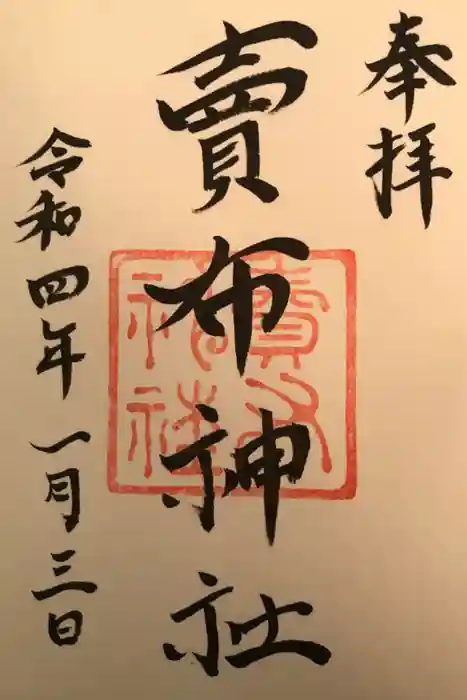 奉拝
賣布神社
賣布神社
令和四年一月三日